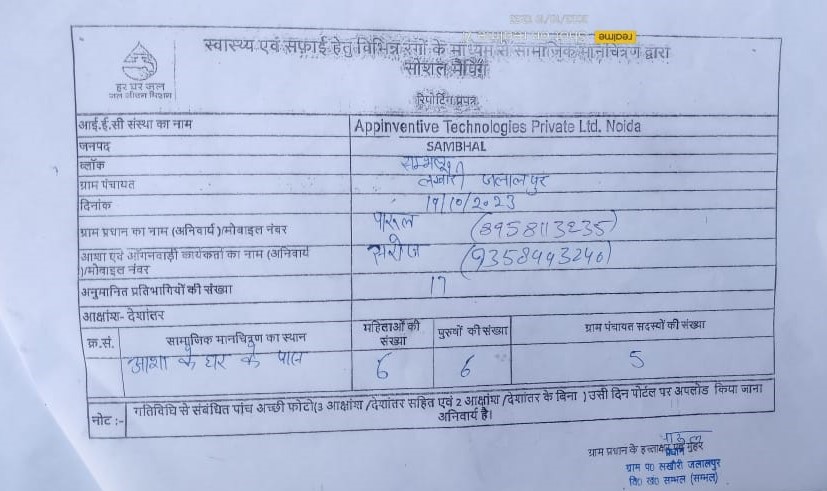 स्वास्थ्य एवं सफ़ाई हेतु विभिन्न रंगों के माध्यम से सामाजिक मानचित्रण द्वारा
सोशल मैपिंग
हर घर जल
जल जीवन मिशन
रिपोर्टिंग प्रपत्र
आई.ई.सी संस्था का नाम Appinventive Technologies Private Ltd. Noida
जनपद SAMBHAL
ब्लॉक सम्भल
ग्राम पंचायत लखौरी जलालपुर
दिनांक 19/10/2023
ग्राम प्रधान का नाम (अनिवार्य )/मोबाइल नंबर पारूल (8958113235)
आशा एवं आँगनवाड़ी कार्यकर्ता का नाम (अनिवार्य सरोज (9358443240)
)/मोबाइल नंबर
अनुमानित प्रतिभागियों की संख्या 17
आक्षांश- देशांतर
क्र.सं. सामाजिक मानचित्रण का स्थान महिलाओं की संख्या पुरुषों की संख्या ग्राम पंचायत सदस्यों की संख्या
आशा के घर के पास 6 6 5
नोट :- गतिविधि से संबंधित पांच अच्छी फोटो(3 आक्षांश /देशांतर सहित एवं 2 आक्षांश /देशांतर के बिना ) उसी दिन पोर्टल पर अपलोड किया जाना
अनिवार्य है।
पारूल
ग्राम प्रधान के हस्ताक्षर एवं मुहर
प्रधान
ग्राम प० लखौरी जलालपुर
वि० खं० सम्भल (सम्भल)
realme